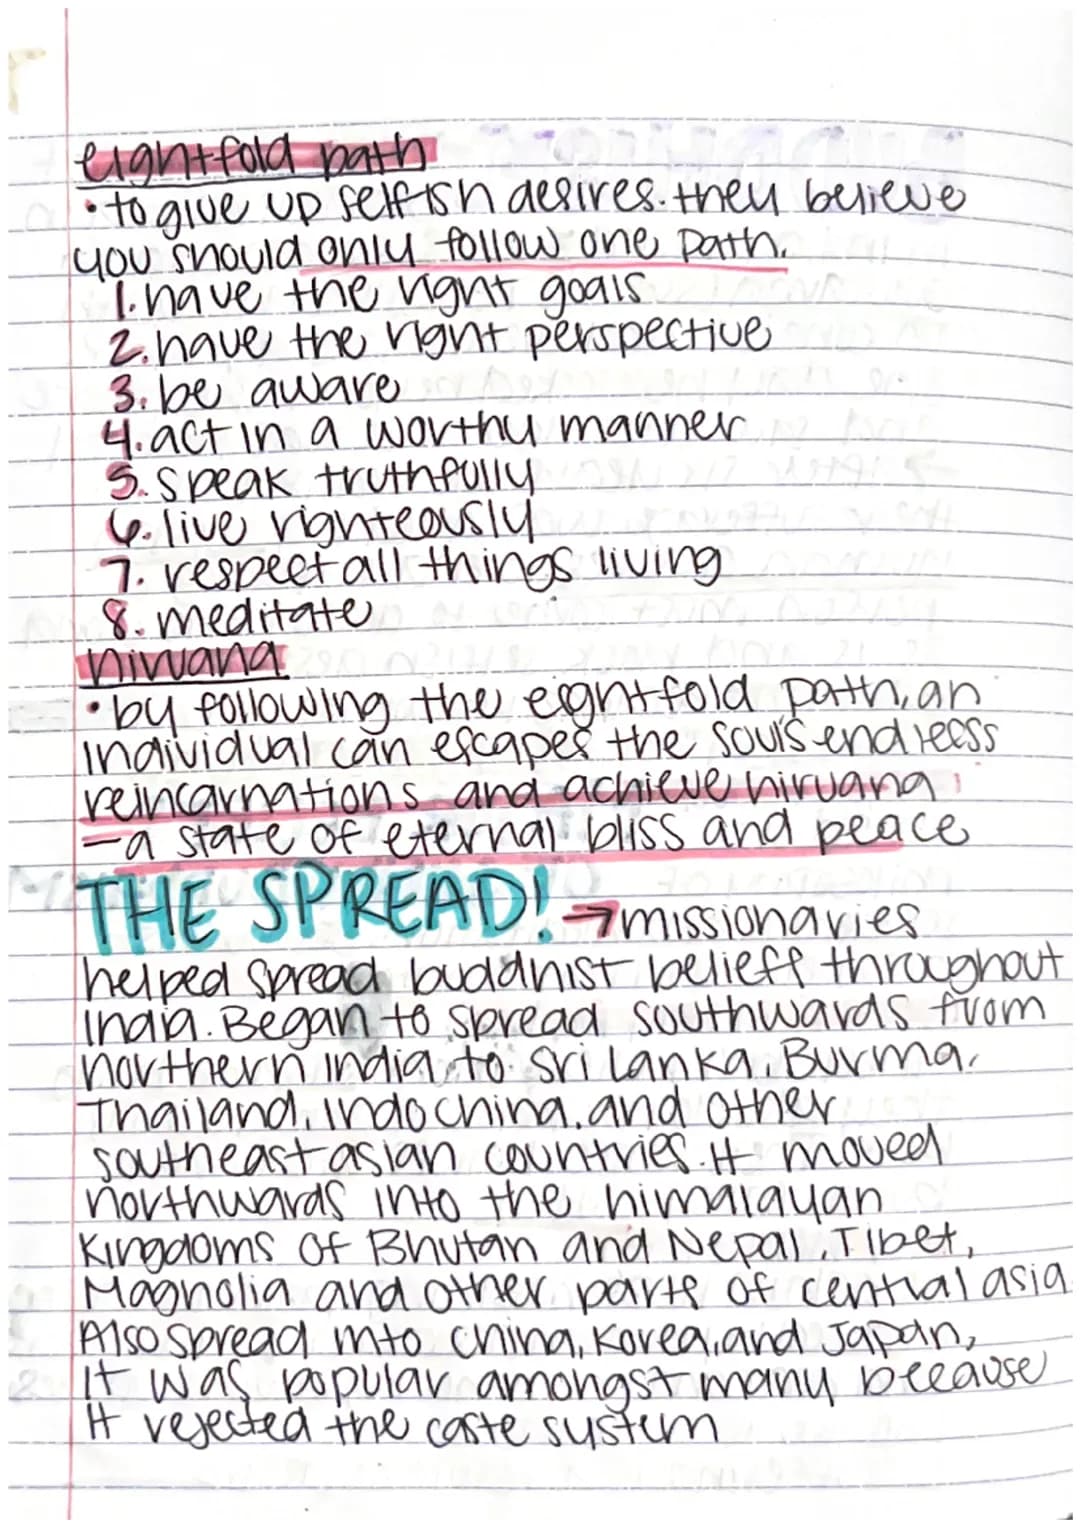 eightfold path
• to give up selfish desires. they believe
you should only follow one path.
1. have the right goals
2. have the right perspective
3. be aware
4. act in a worthy manner
5. speak truthfully
6. live righteously
7. respect all things living
8. meditate
nirvana
• by following the eightfold path, an
individual can escapes the soul's endless
reincarnations and achieve nirvana
- a state of eternal bliss and peace
THE SPREAD! → missionaries
helped spread buddhist belieff throughout
India. Began to spread southwards from
northern india, to Sri Lanka, Burma,
Thailand, indochina, and other
southeast asian countries. It moved
northwards into the himalayan
Kingdoms of Bhutan and Nepal, Tibet,
Magnolia and other parts of central asia
Also spread into china, Korea, and Japan,
It was popular amongst many because
It rejected the caste system